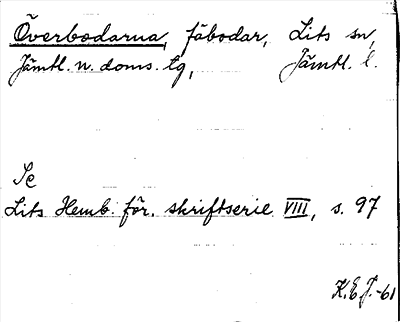 Överbodarna, fäbodar, Lits sn,
Jämtl. n. doms. tg, Jämtl. l.
Se
Lits Hemb. för. skriftserie VIII, s. 97
K.E.J.-61